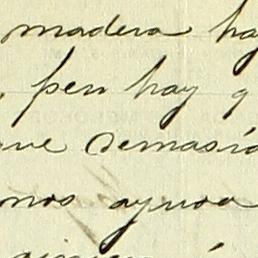 madera ha
, pero hay q
ue demasia
nos ayuda